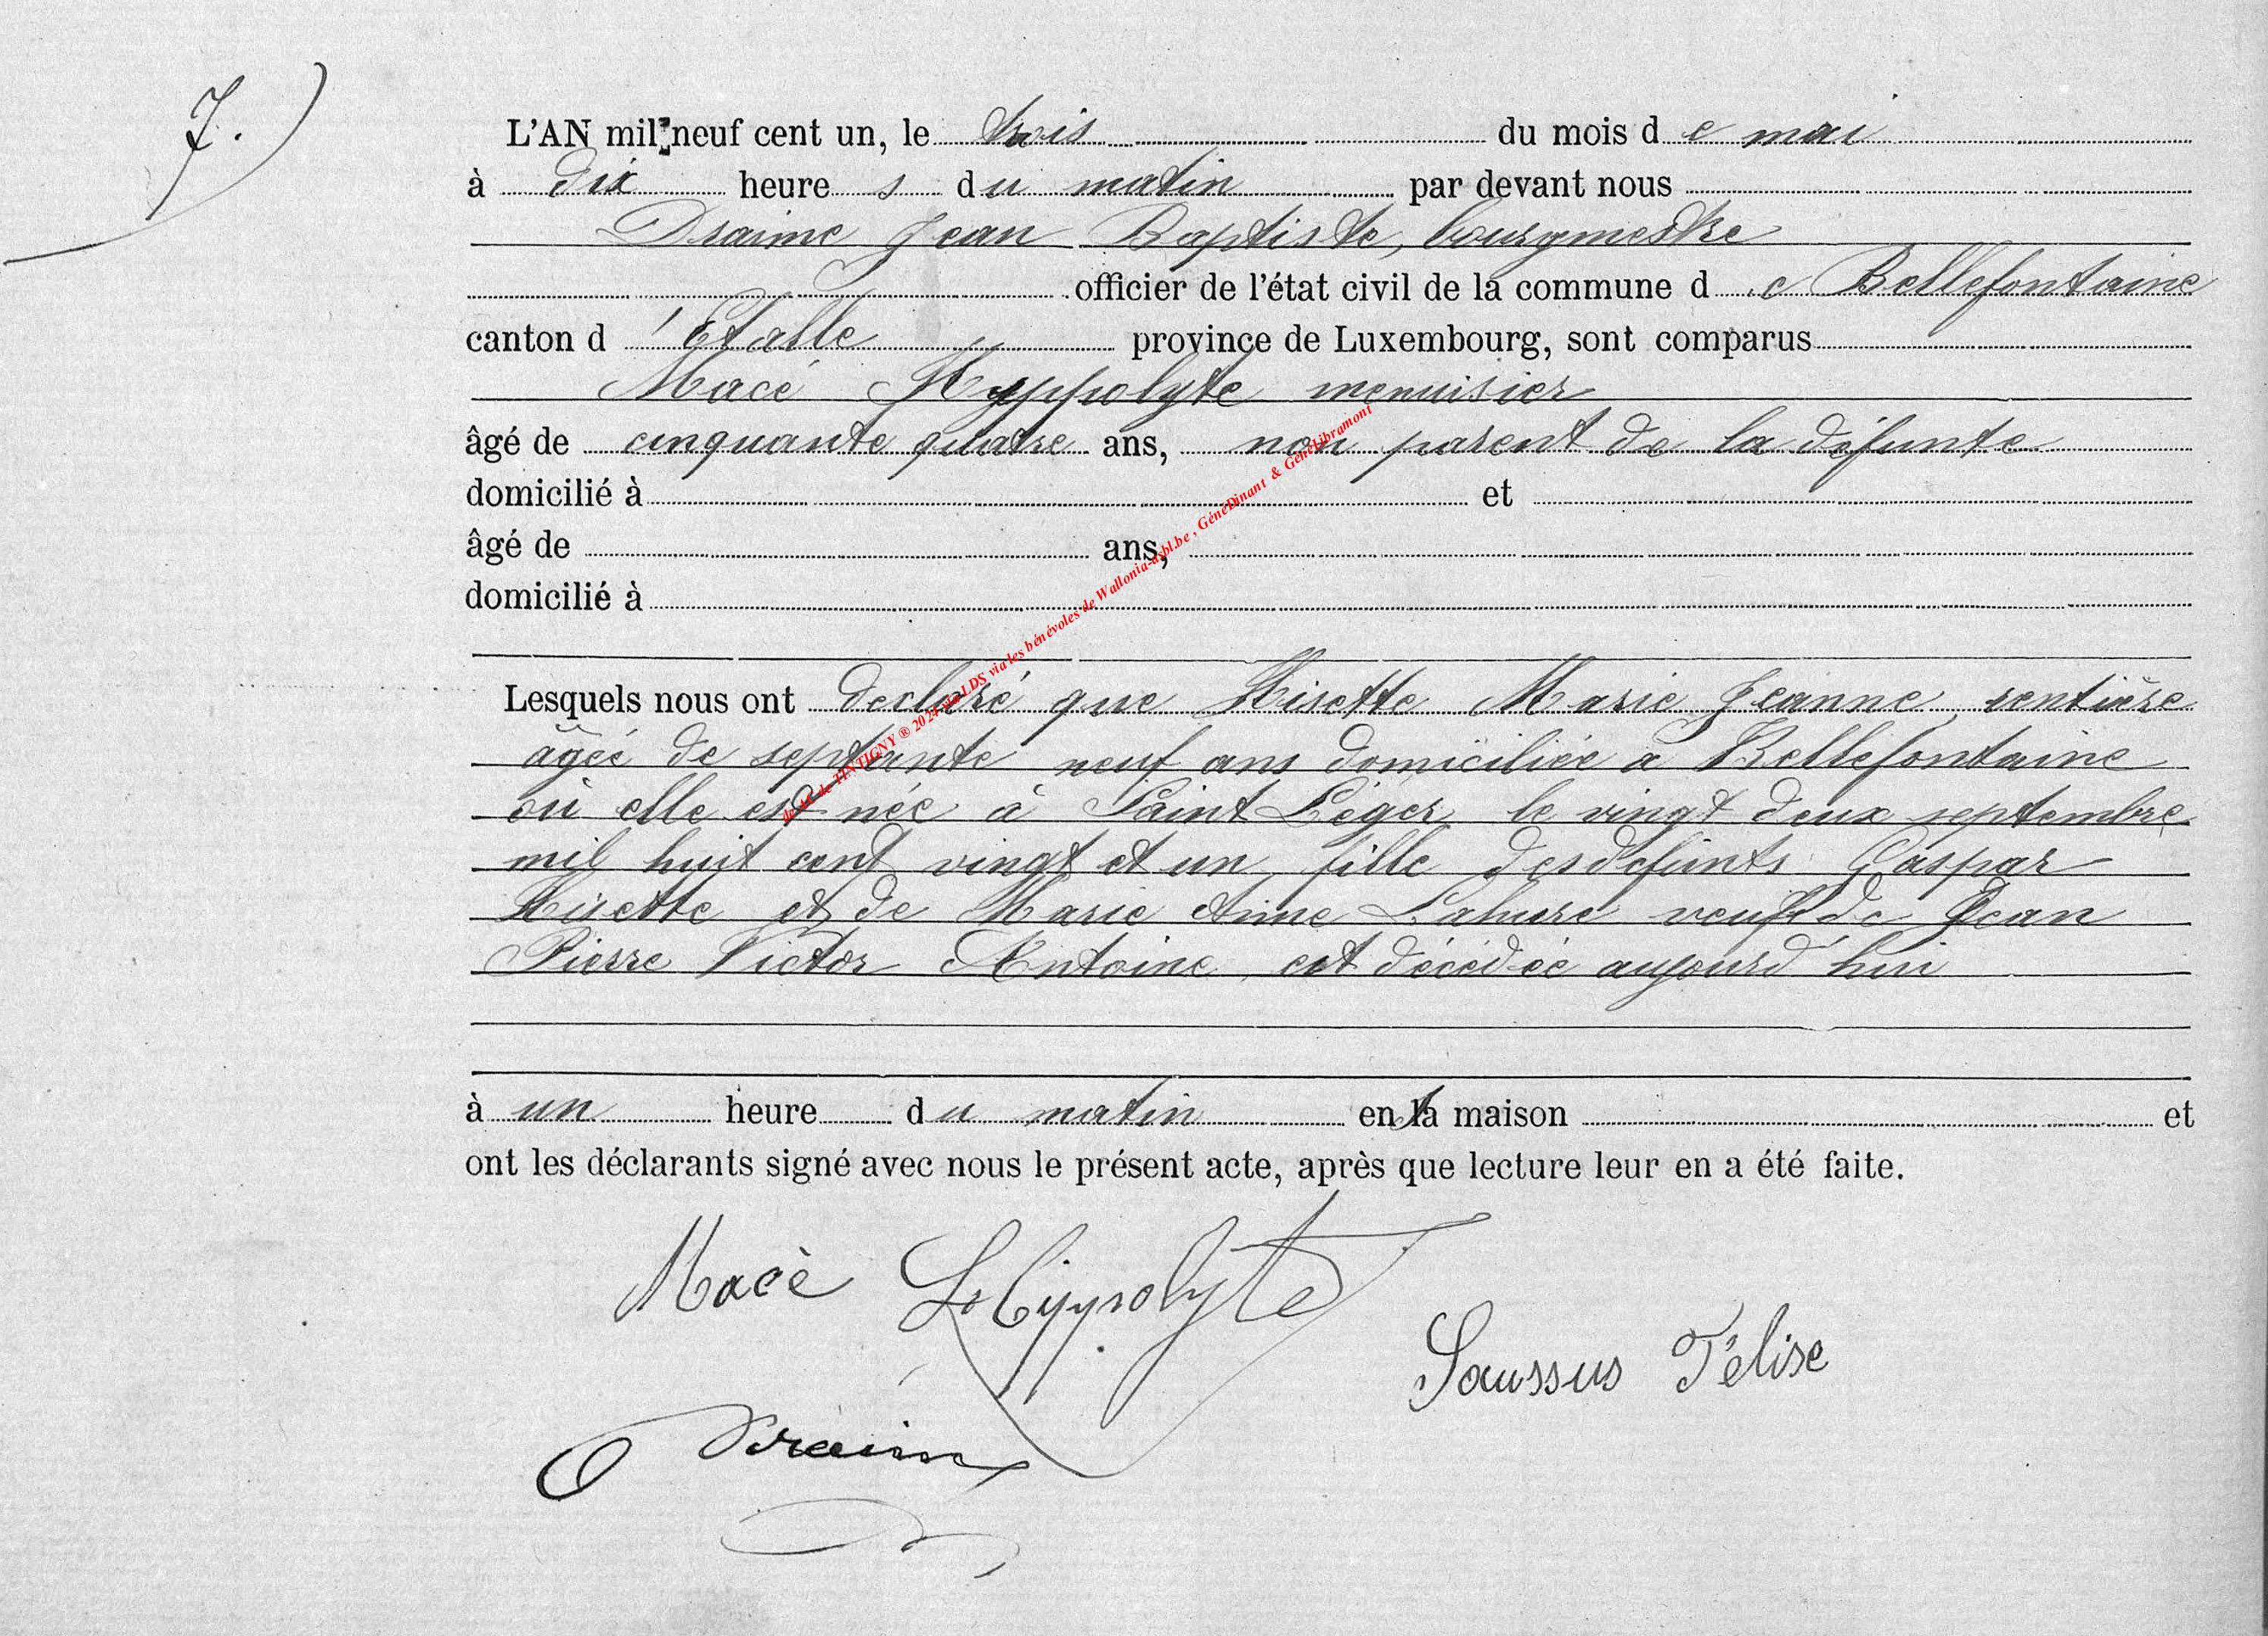 7.
L'AN mil neuf cent un, le trois du mois de mai
à dix heures du matin par devant nous
Draime Jean Baptiste, bourgmestre
officier de l'état civil de la commune de Bellefontaine
canton d'Etalle province de Luxembourg, sont comparus
Macé Hyppolyte menuisier
âgé de cinquante quatre ans, non parent de la défunte
domicilié à et
âgé de ans,
domicilié à
Lesquels nous ont declaré que Hisette Marie Jeanne, rentière
âgée de septante neuf ans domiciliée à Bellefontaine
où elle est née à Saint Léger le vingt deux septembre
mil huit cent vingt et un, fille des défunts Gaspar
Hisette et de Marie Anne Lahure veuf de Jean
Pierre Victor Antoine, est décédée aujourd'hui
à un heure du matin en sa maison et
ont les déclarants signé avec nous le présent acte, après que lecture leur en a été faite.
Macè Hippolyte
Saussus Félise
Draime
de TINTIGNY ® 2024 via LDS via les bénévoles de Wallonia-asbl.be, GénéDinant & GénéLibramont